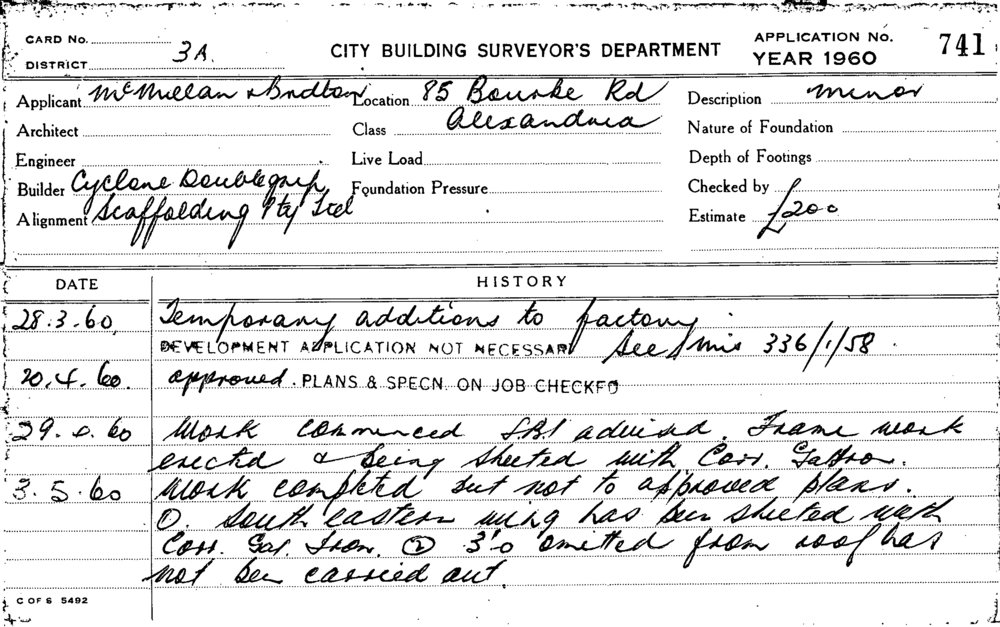 CARD No.
DISTRICT 3A.
CITY BUILDING SURVEYOR'S DEPARTMENT
APPLICATION No. 741
YEAR 1960
Applicant McMillan & Location 85 Bourke Rd Description minor
Architect Class Alexandria Nature of Foundation
Engineer Live Load Depth of Footings
Builder Cyclone Doublegrip Foundation Pressure Checked by
Alignment Scaffolding Pty Ltd Estimate £200
DATE HISTORY
28.3.60 Temporary additions to factory.
DEVELOPMENT APPLICATION NOT NECESSARY See Mis 336/1/58
20.4.60. approved. PLANS & SPECN. ON JOB CHECKED
29.4.60 Work commenced advised. Frame work
erected & being sheeted with Corr. Gal Iron.
3.5.60 Work completed but not to approved plans.
①. South eastern wing has been sheeted with
Corr. Gal. Iron. ② 3'0 omitted from roof has
not been carried out.
C OF S 5492